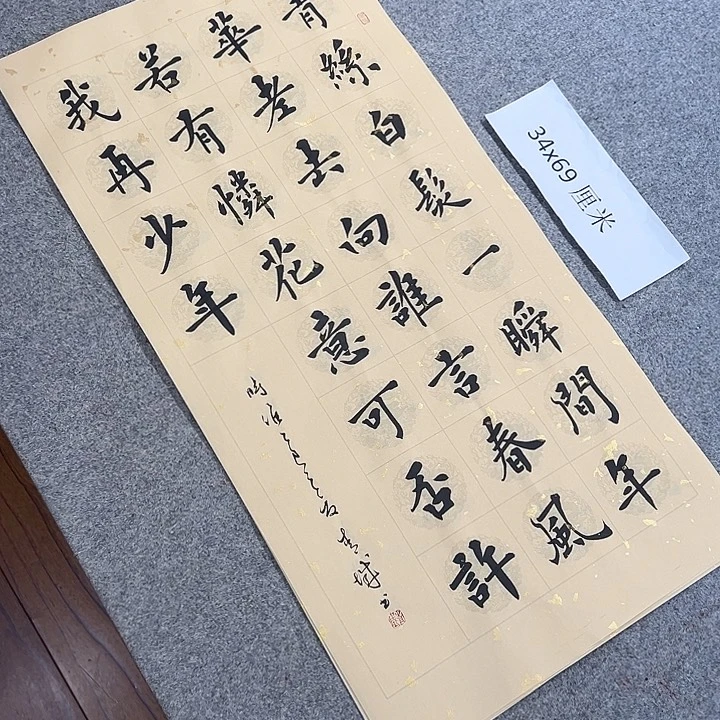 青絲白髮一瞬間年
華老去向誰言春風
若有憐花意可否許
我再少年
34x69 厘米